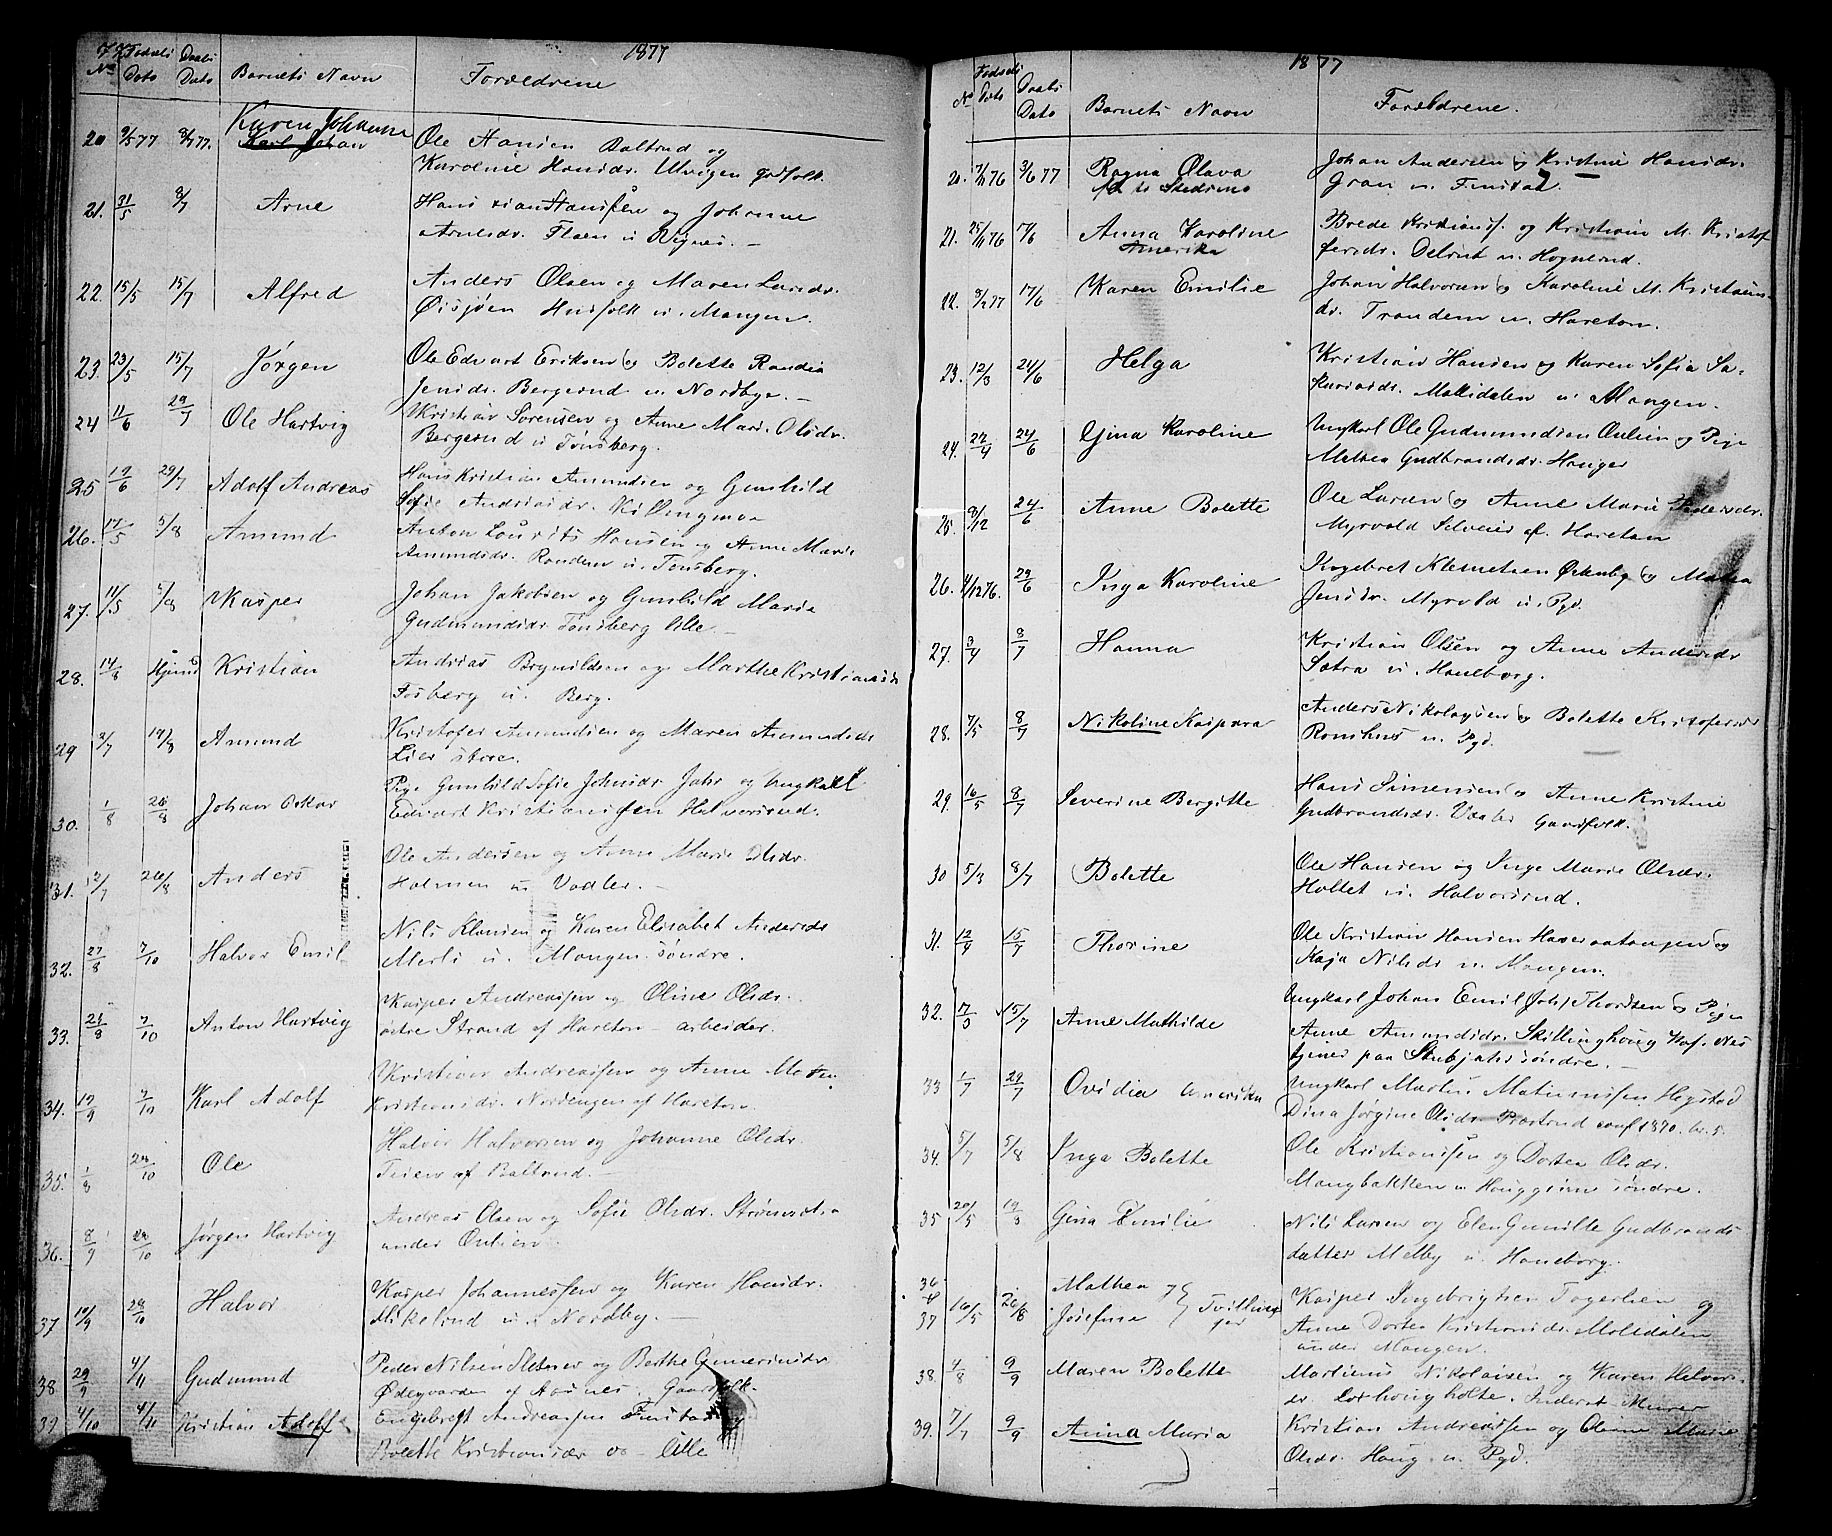 1877
No Fødsels Dato Daabs Dato Barnets Navn Forældrene
20 9/5 77 8/7 77. Karen Johanne
Karl Johan
Ole Hansen Baltrud og
Karoline Hansdr. Ulvigen godfolk.
21. 31/5 8/7 Arne
Hans og Johanne
Arnesdr. Flaen u Vignes. —
22. 15/5 15/7 Alfred
Anders Olsen og Maren Larsdr.
Øisjøen Husfolk u. Mangen.
23. 23/5 15/7 Jørgen
Ole Edvart Eriksen og Bolette Randia
Jensdr. Bergerud u Nordbye. —
24 11/6 29/7 Ole Hartvig
Kristian Sørensen og Anne Mari Olsdr.
Bergerud u Tønsberg.
25 19/6 29/7 Adolf Andreas
Hans Kristian Amundsen og Gunhild
Sofie Andriasdr. Killingmoe
26. 17/5 5/8 Amund
Anton Lourits Hansen og Anne Marie
Amundsdr. Randem u. Tønsberg.
27. 11/5 5/8 Kasper
Johan Jakobsen og Gunhild Maria
Gudmundsdr Tønsberg lille —
28. 14/8 Hjemd Kristian
Andrias Brynildsen og Marthe Kristiansdr
Fosberg u. Berg.
29 2/7 19/8 Amund
Kristofer Amundsen og Maren Amundsdr
Lier store.
30. 1/8 26/8 Johan Oskar
Pige Gunhild Sofie Johnsdr Jahr og Ungkarl
Edvart Kristiansen Halvorsrud.
31. 12/7 26/8 Anders
Ole Andersen og Anne Marie Olsdr.
Holmen u Vadler. —
32. 27/8 7/10 Halvor Emil
Nils Klausen og Karen Elisabet Andersdr
Merli u. Mangen søndre.
33. 28/8 7/10 Anton Hartvig
Kasper Andreassen og Oline Olsdr.
østre Strand af Hareton — arbeider.
34. 19/9 7/10 Karl Adolf
Kristian Andreassen og Anne Mathea
Kristiansdr. Nordengen af Hareton.
35. 1/8 28/10 Ole
Halvor Halvorsen og Johanne Olsdr.
Teien af Baltrud. —
36. 8/9 28/10 Jørgen Hartvig
Andreas Olsen og Sofie Olsdr. Strømsstra
under Aulien.
37 10/9 28/10 Halvor
Kasper Johannessen og Karen Hansdr.
Mikelrud u. Nordby. —
38 29/9 4/11 Gudmund
Peder Nilsen Sletner og Berthe Guneriusdr
Ødegaarden af Aarnes. Gaardfolk.
39 4/10 4/11 Kristian Adolf
Engebret Andreassen Finstad og
Bolette Kristiansdr — lille
1877
No Fødsels Dato Daabs Dato Barnets Navn Forældrene.
20. 7/11 76 3/6 77 Ragna Olava
Johan Andersen og Kristine Hansdr.
Gran u. Finstad.
21. 25/11 76 17/6 Anna Karoline
Amerika
Brede Kristians. og Kristiane M. Kristof
fersdr. Delrut u. Hognerud.
22. 9/2 77 17/6 Karen Emilie
Johan Halvorsen og Karoline M. Kristians-
dr. Trandem u. Hareton.
23. 12/3 24/6 Helga
Kristian Hansen og Karen Sofia Sa-
kariasdr. Mallidalen u. Mangen.
24. 22/4 24/6 Gina Karoline
Ungkarl Ole Gudmundsen Aulien og Pige
Mathea Gudbrandsdr. Hauger
25. 9/12 24/6 Anne Bolette
Ole Larsen og Anne Marie Pedersdr.
Myrvold Selveier af Haretan
26. 4/12 76. 29/6 Inga Karoline
Ingebret Klemetsen Østenby og Matea
Jensdr. Myrvold u. Pyd.
27. 3/4 8/7 Hanna
Kristian Olsen og Anne Andersdr
Sætra u. Haneborg.
28. 7/5 8/7 Nikoline Kaspara
Anders Nikolaysen og Bolette Kristofersdr
Romhus u. Pyd.
29. 16/5 8/7 Severine Bergitte
Hans Simensen og Anne Kristine
Gudbrandsdr. Vaaler Gaardfolk.
30 5/3 8/7 Bolette
Ole Hansen og Inge Marie Olsdr.
Holtet u. Halvorsrud.
31. 12/4 15/7 Thorine
Ole Kristian Hansen Haveraatangen og
Kaja Nilsdr u. Mangen.
32. 7/3 15/7 Anne Mathilde
Ungkarl Johan Emil Joh. Thordsen og Pige
Anne Amundsdr. Skillinghoug
tjener paa Stubjahr søndre. —
33 1/7 29/7 Ovidia Amerika
Ungkarl Martin Matiassen Hegstad
Dina Jørgine Olsdr. Præstrud conf 1870. br. 5.
34. 5/7 5/8 Inga Bolette
Ole Kristiansen og Dortea Olsdr.
Mangbakken u Houggeim søndre.
35 20/5 19/8 Gina Emilie
Nils Larsen og Elen Gunille Gudbrands
datter Melby u. Haneborg.
36 & 37 16/5 26/8 Mathea og
Josefine } Tvillinger
Kasper Ingebrigtsen Togerlien og
Anne Dortea Kristiansdr. Mollidalen
under Mangen.
38. 4/8 9/9 Maren Bolette
Martinus Nikolaisen og Karen Halvors-
dr. Murer
39. 7/7 9/9 Anna Maria
Kristian Andreassen og Oline Marie
Olsdr. Haug u. Pyd.